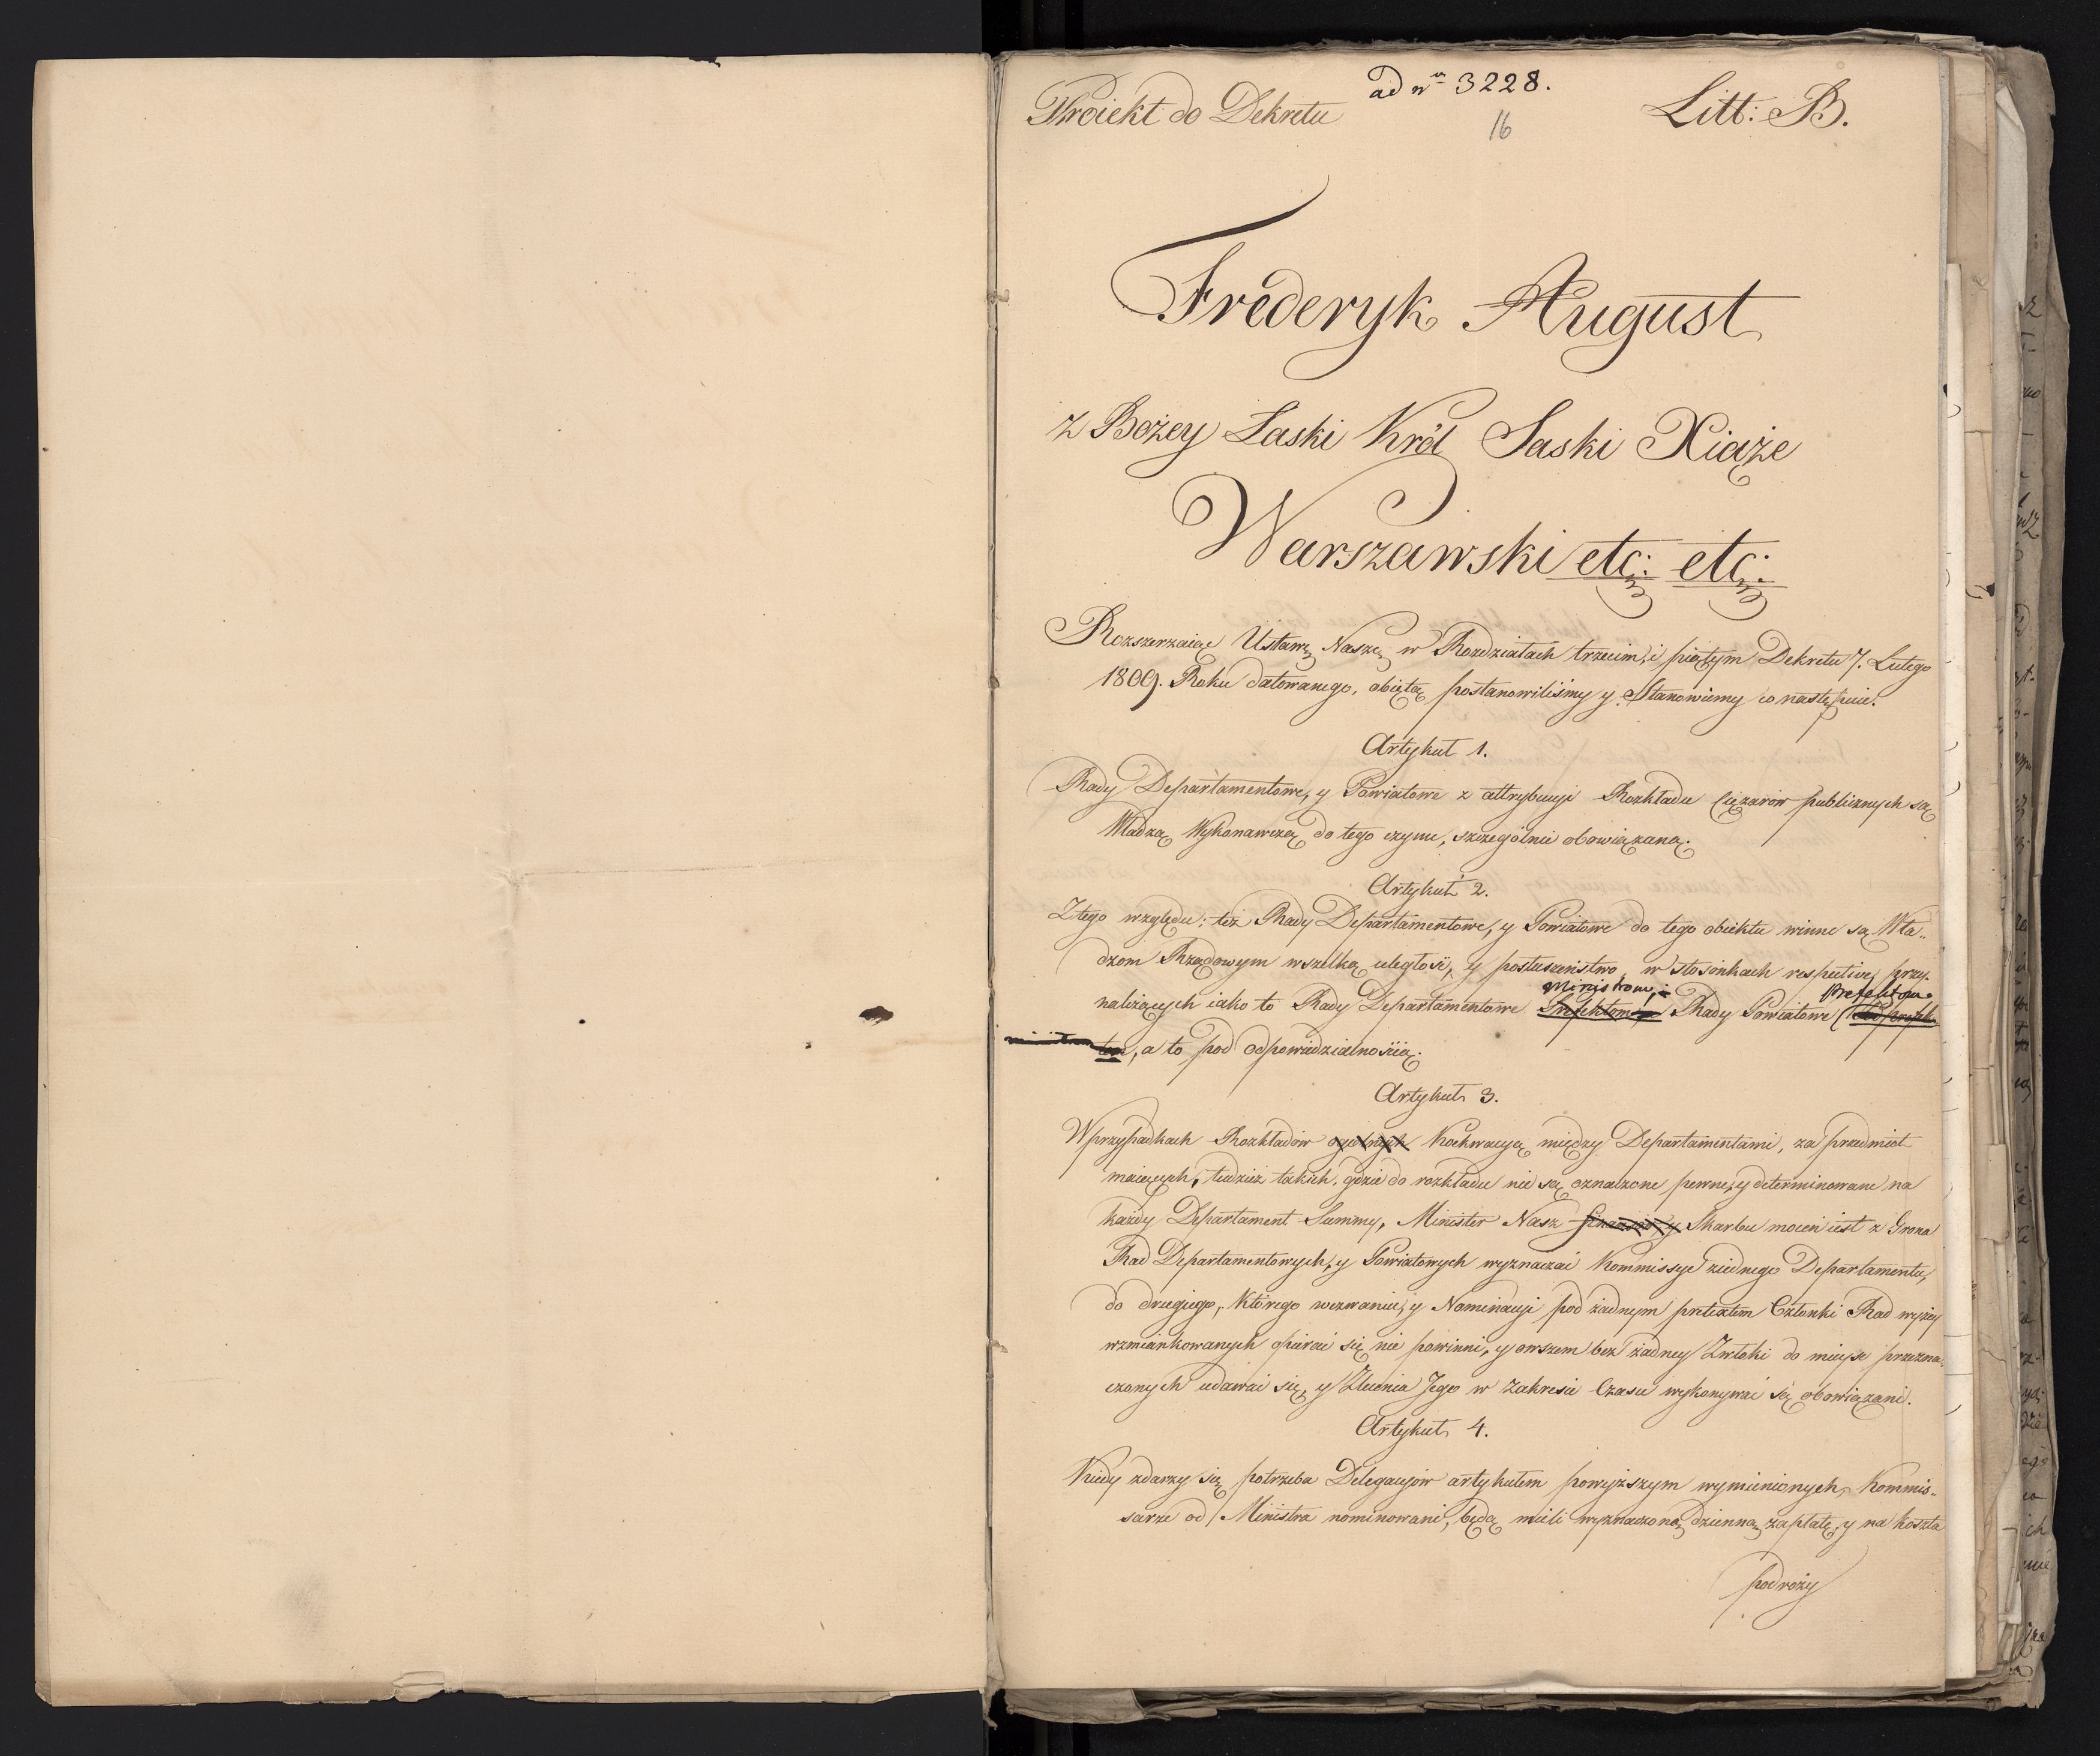 ad nr 3228.
Proiekt do Dekretu
Litt: B.
16
Frederyk August
z Bożey Łaski Król Saski Xiąże
Warszawski etc: etc:
Rozszerzaiąc Ustawę Naszę w Rozdziałach trzecim, i piątym Dekretu 7. Lutego
1809. Roku datowanego, obiętą postanowiliśmy y Stanowiemy co następuie.
Artykuł 1.
Rady Departamentowe, y Powiatowe z attrybucyi Rozkładu Ciężarów publicznych są
Władzą Wykonawczą do tego czynu, szczególnie obowiązaną.
Artykuł 2.
Z tego względu; też Rady Departamentowe, y Powiatowe do tego obiektu winne są Wła-
dzom Rządowym wszelką uległość, y posłuszeństwo, w stosónkach respective przy-
Ministrowi, i Prefektom
należących iako to Rady Departamentowe Prefektom, y Rady Powiatowe Podprefek-
tom, a to pod odpowiedzialnością.
Artykuł 3.
W przypadkach Rozkładów ogólnych Koekwacyą między Departamentami, za przedmiot
maiących, tudzież takich, gdzie do rozkładu nie są oznaczone pewne, y determinowane na
każdy Departament Summy, Minister Nasz Skarbu mocen iest z Grona
Rad Departamentowych, y Powiatowych wyznaczać Kommissye z iednego Departamentu,
do drugiego, którego wezwaniu, y Nominacyi pod żadnym pretextem Członki Rad wyżey
wzmiankowanych opierać się nie powinni, y owszem bez żadney Zwłoki do mieysc przezna-
czonych udawać się, y Zlecenia Jego w Zakresie Czasu wykonywać są obowiązani.
Artykuł 4.
Kiedy zdarzy się potrzeba Delegacyów artykułem powyższym wymienionych, Kommis-
sarze od Ministra nominowani, będą mieli wyznaczoną dzienną zapłatę, y na koszta
podroży